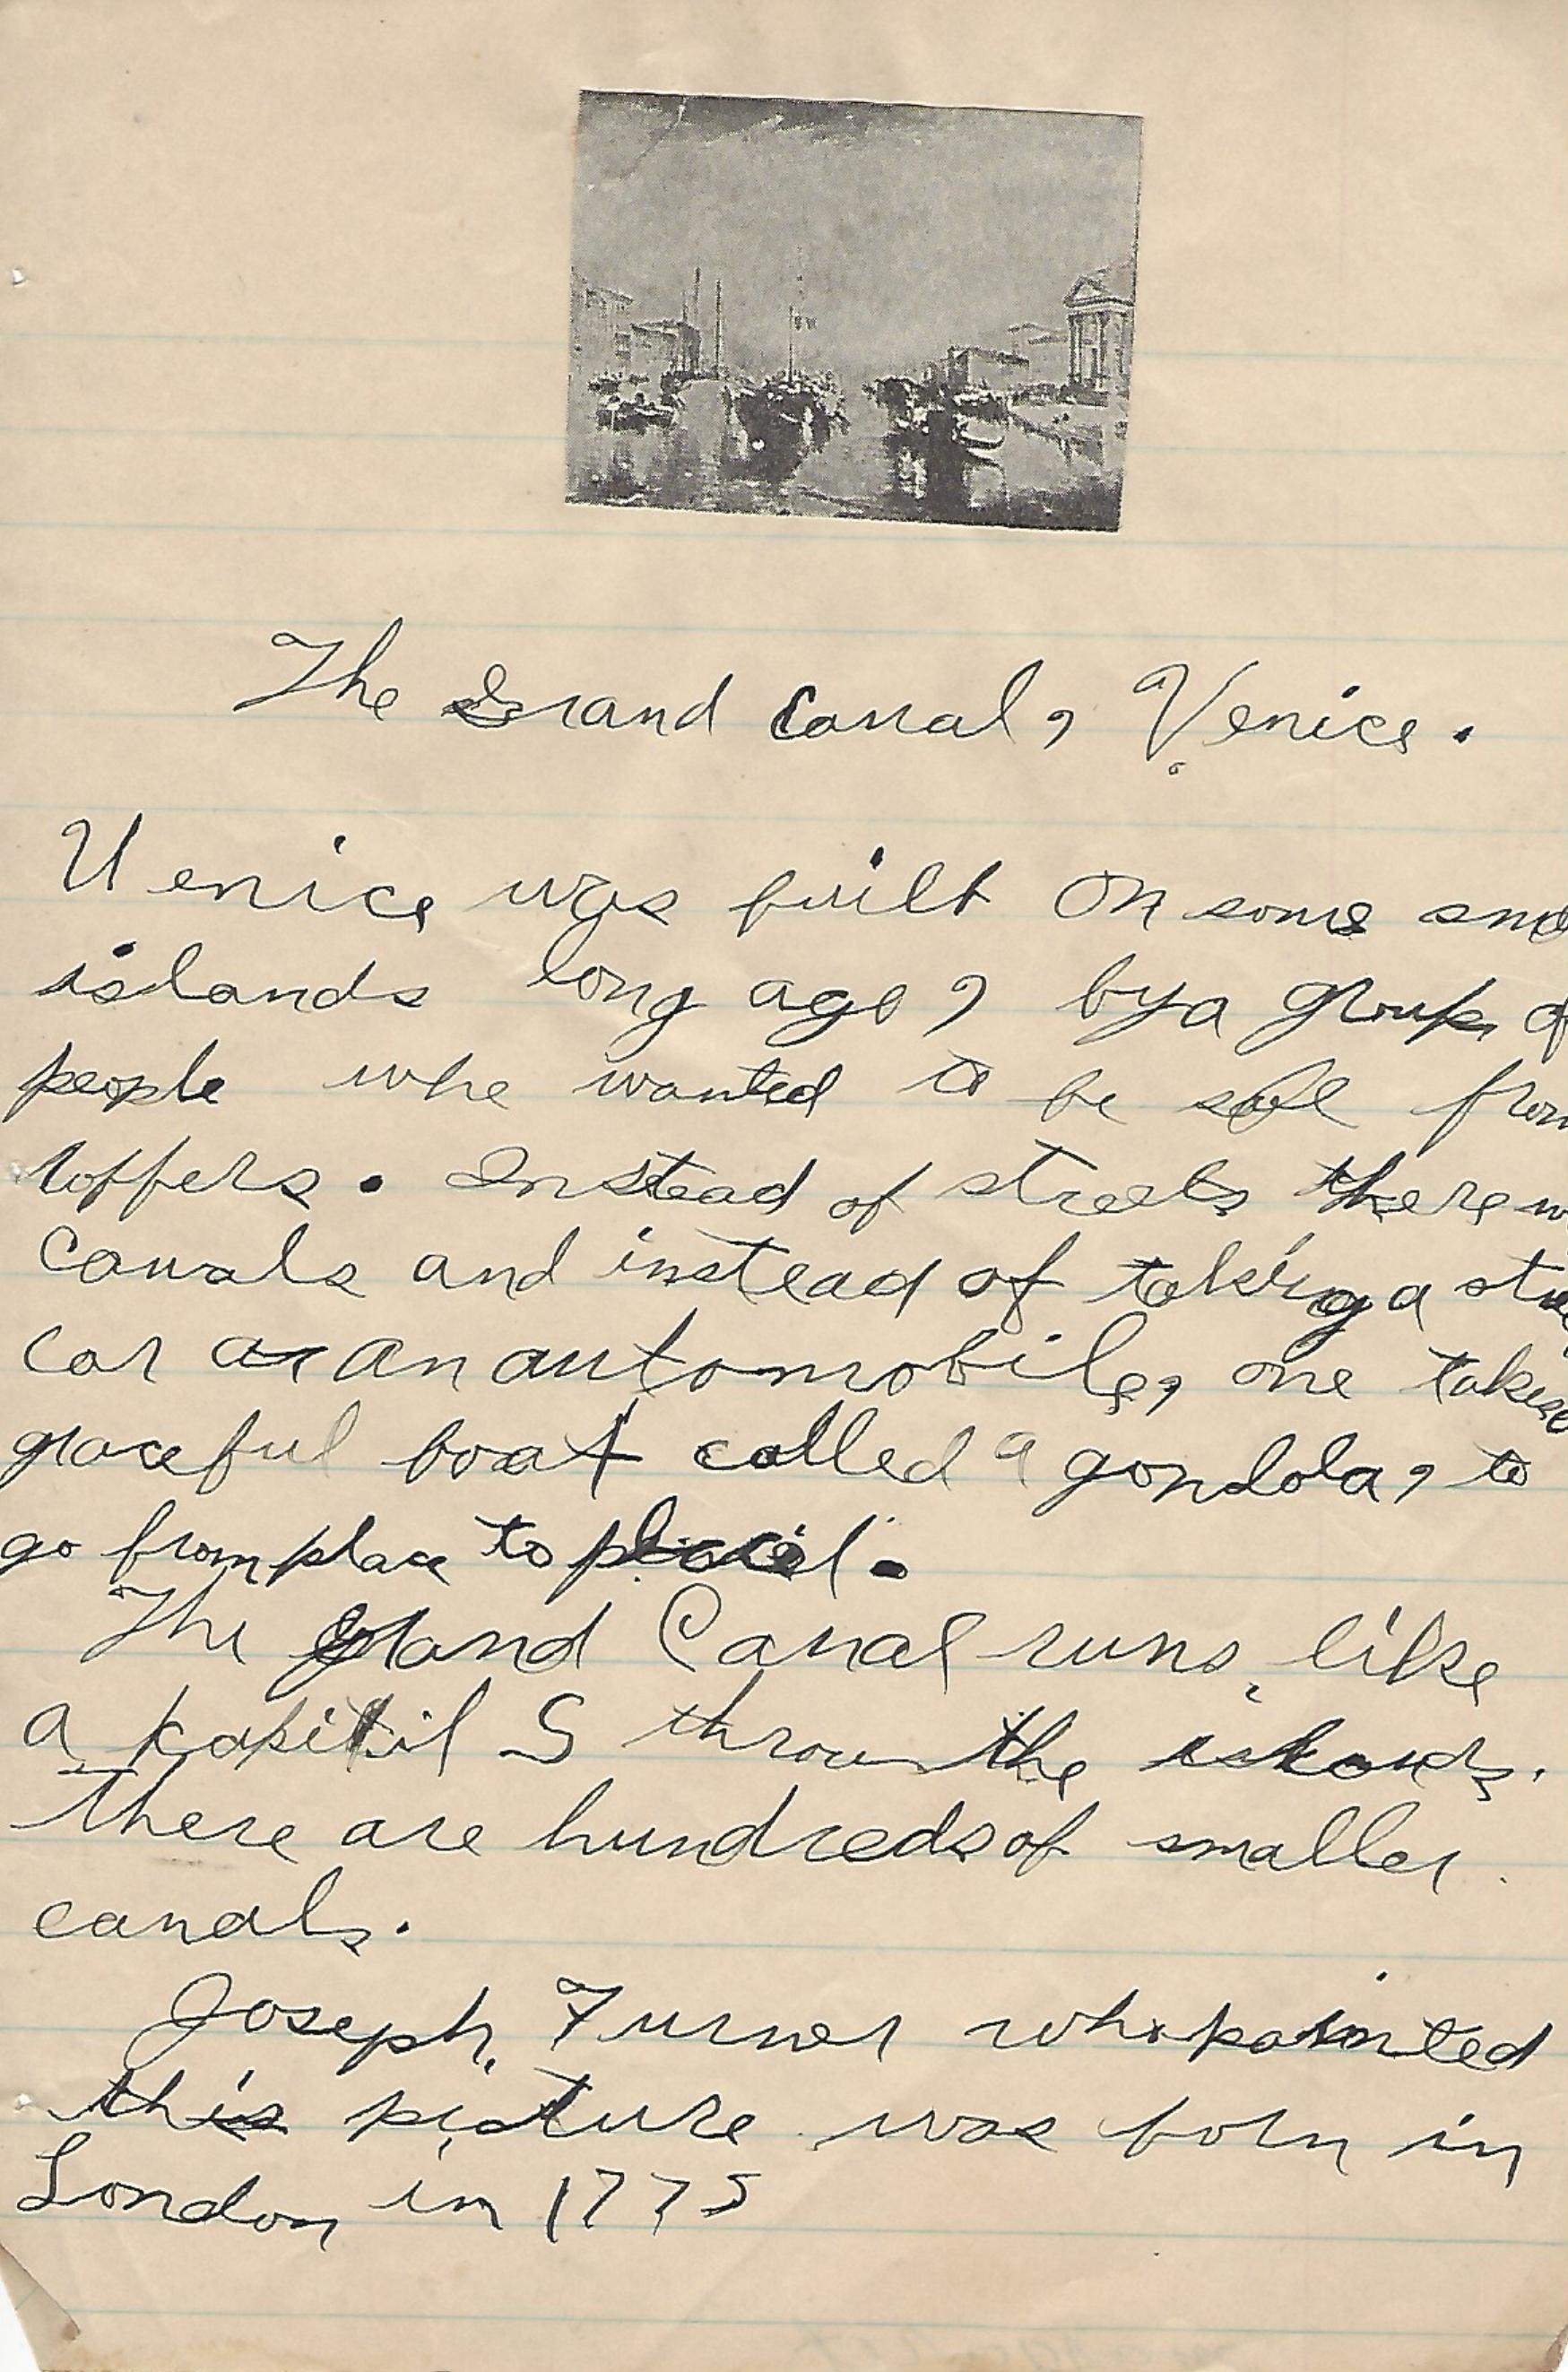 The Grand Canal, Venice.
Venice was built on some
islands long ago, by a group of
people who wanted to be safe from
roffers. Instead of streets there
Canals and instead of taking a
car or an automobile, one takes
graceful boat called a gondola, to
go from place to
The Grand Canal runs like
a kapitil S throu the islands.
there are hundreds of smaller
canals.
Joseph Turner who painted
this picture was born in
London in 1775